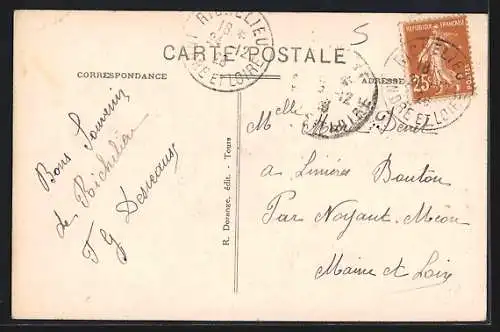 5
CARTE POSTALE
CORRESPONDANCE
ADRESSE
RICHELIEU
INDRE ET LOIRE
REPUBLIQUE FRANÇAISE
25
POSTES
Bons Souvenirs
de Richelieu
R. Dorange, édit. - Tours
Melle
à Linières Bouton
Par Noyant-Méon
Maine et Loire